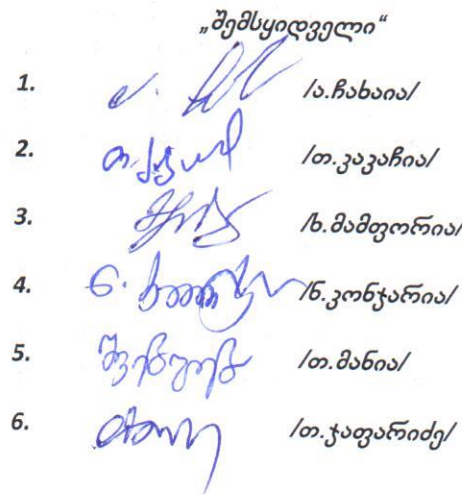 „შემსყიდველი“
1. /ა.ჩახაია/
2. /თ.კაკაჩია/
3. /ხ.მამფორია/
4. /ნ.კონჯარია/
5. /თ.მანია/
6. /თ.ჯაფარიძე/